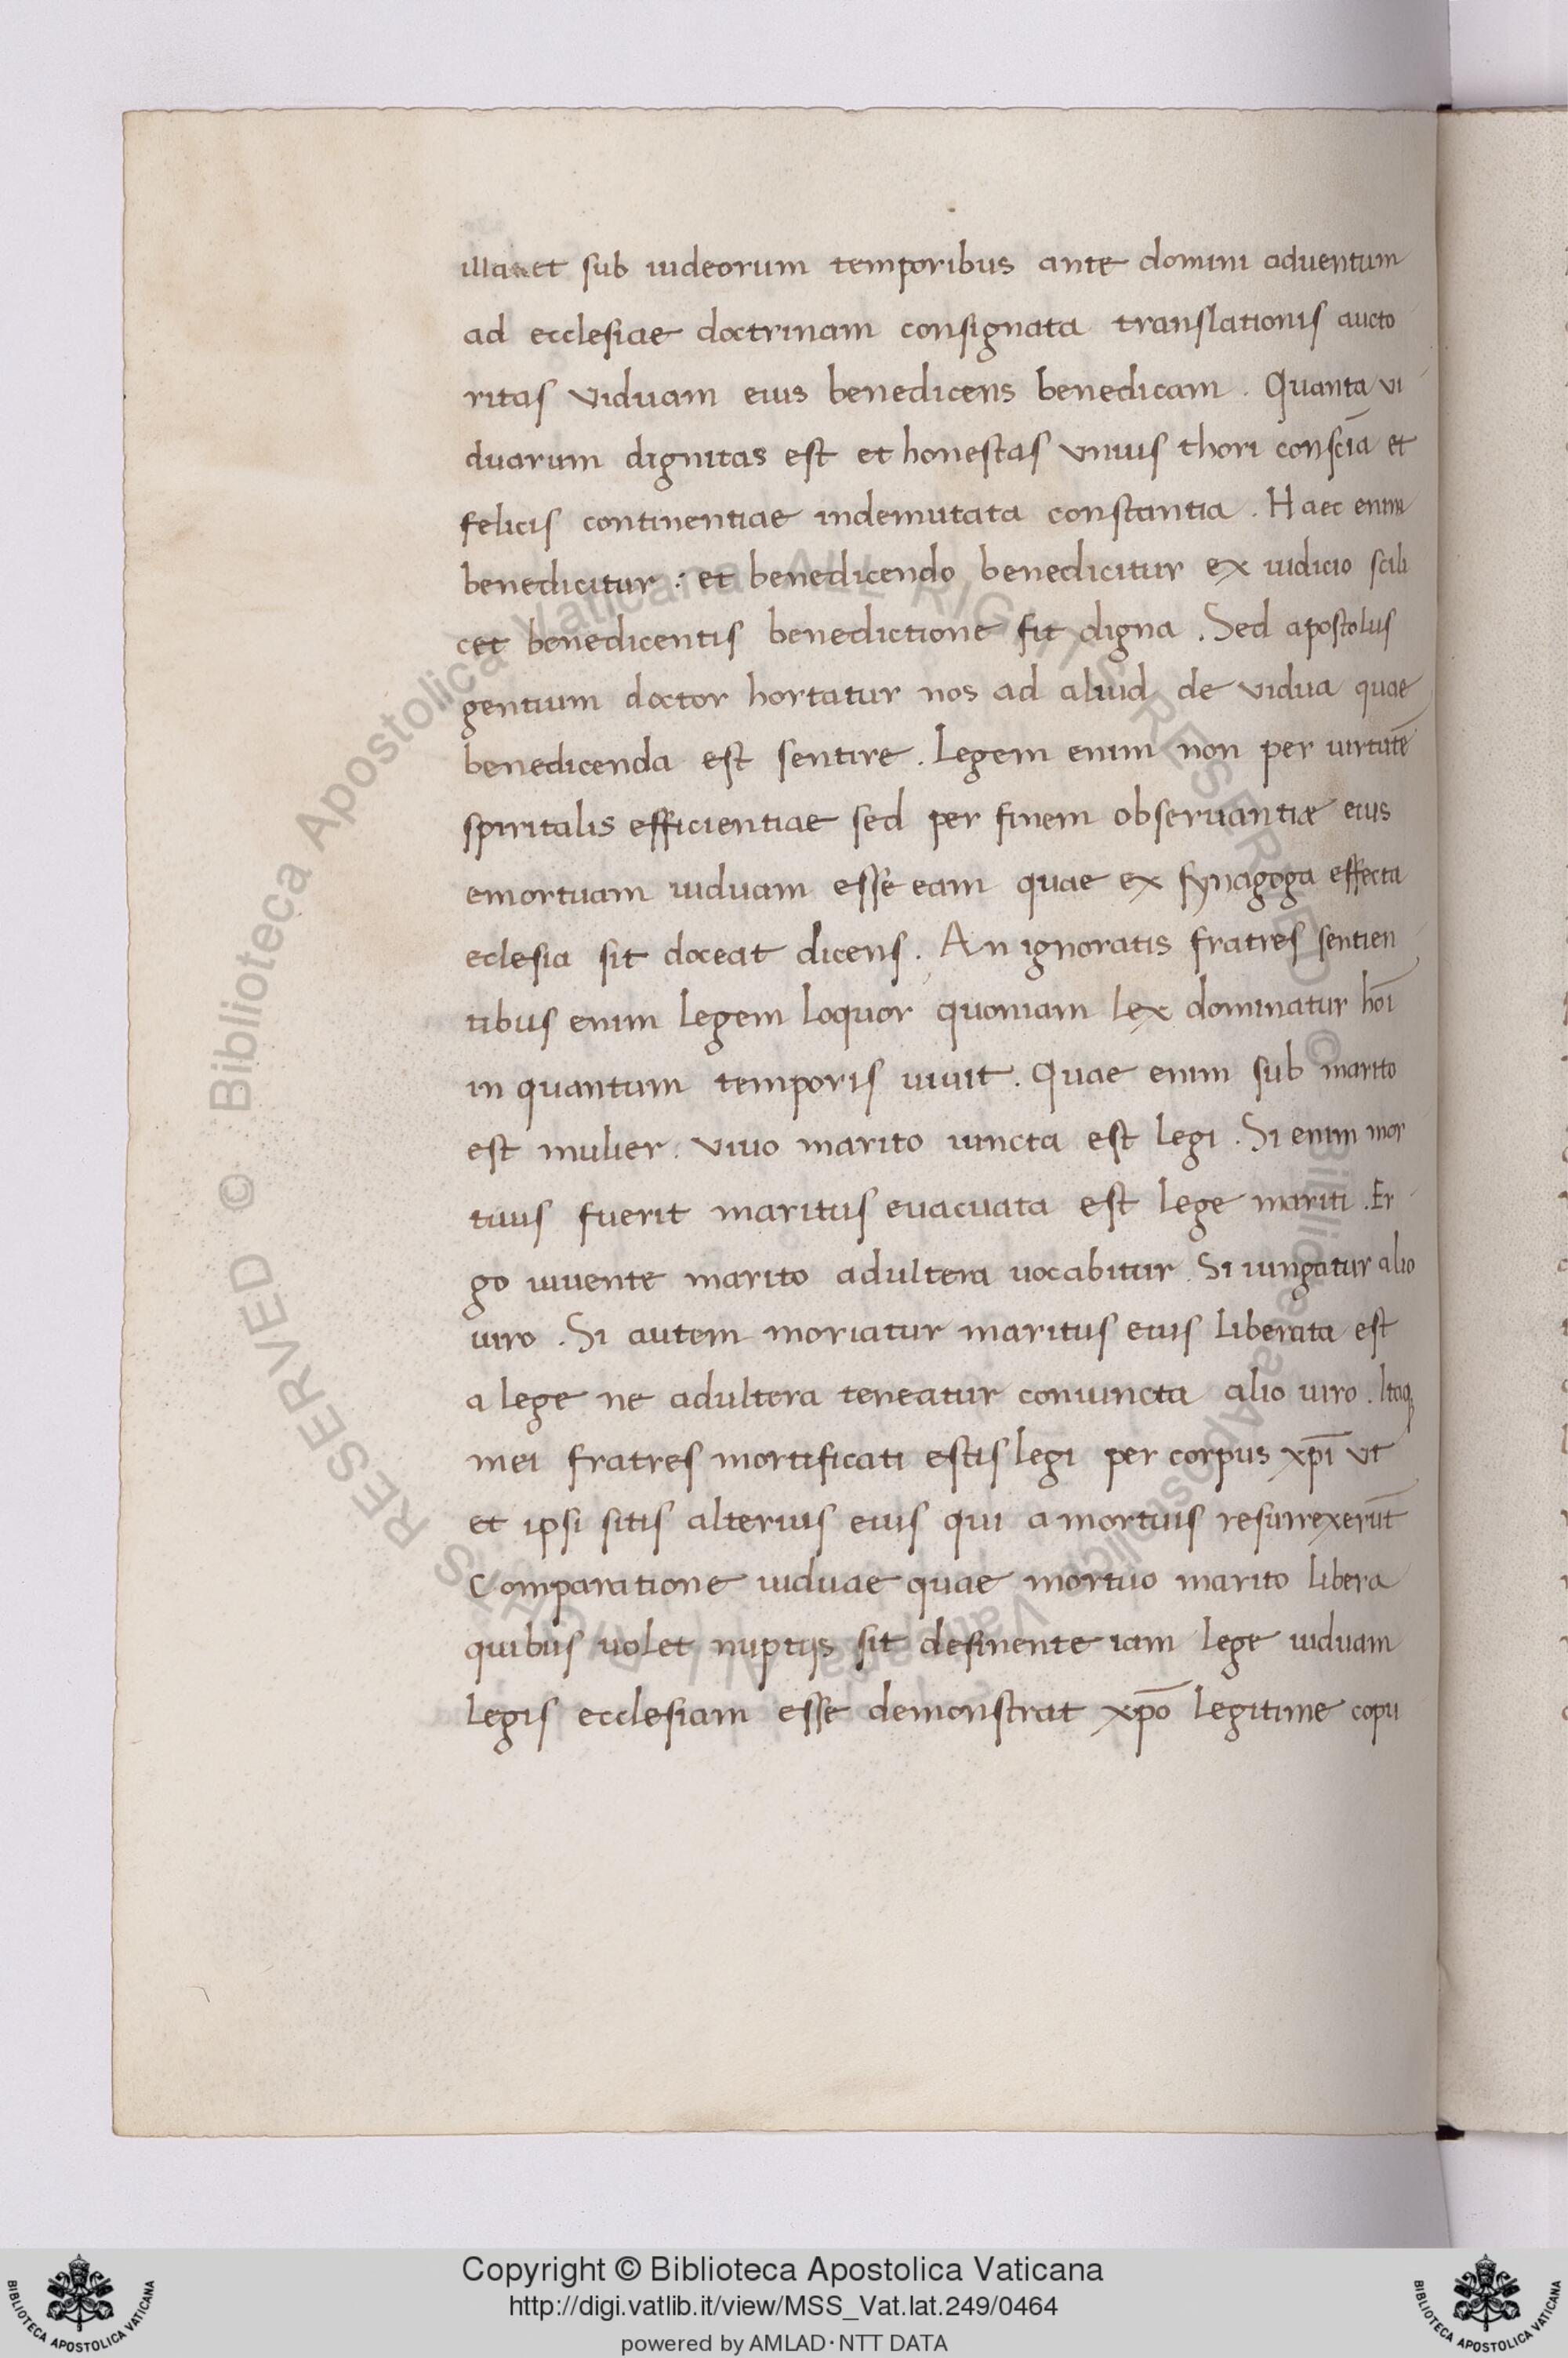 illa et sub iudeorum temporibus ante domini aduentum
ad ecclesiae doctrinam consignata translationis aucto
ritas viduam eius benedicens benedicam . Quanta vi
duarum dignitas est et honestas vnius thori consciā et
felicis continentiae indemutata constantia . Haec enim
benedicitur : et benedicendo benedicitur ex iudicio scili
cet benedicentis benedictione fit digna . Sed apostolus
gentium doctor hortatur nos ad aliud de vidua quae
benedicenda est sentire . Legem enim non per uirtutē
spiritalis efficientiae sed per finem obseruantiæ eius
emortuam uiduam esse eam quae ex synagoga effecta
eclesia sit doceat dicens . An ignoratis fratres sentien
tibus enim legem loquor quoniam lex dominatur hoī
in quantum temporis uiuit . Quae enim sub marito
est mulier . viuo marito iuncta est legi . Si enim mor
tuus fuerit maritus euacuata est lege mariti . Er
go uiuente marito adultera uocabitur . Si iungatur alio
uiro . Si autem moriatur maritus eius liberata est
a lege ne adultera teneatur coniuncta alio uiro . Itaq;
mei fratres mortificati estis legi per corpus xpī vt
et ipsi sitis alterius eius qui a mortuis resurrexerūt
Comparatione uiduae quae mortuo marito libera
quibus uolet nuptijs sit desinente iam lege uiduam
legis ecclesiam esse demonstrat xpō legitime copu
© Biblioteca Apostolica Vaticana ALL RIGHTS RESERVED © Biblioteca Apostolica Vaticana ALL RIGHTS RESERVED
Copyright © Biblioteca Apostolica Vaticana
http://digi.vatlib.it/view/MSS_Vat.lat.249/0464
powered by AMLAD · NTT DATA
BIBLIOTECA APOSTOLICA VATICANA
BIBLIOTECA APOSTOLICA VATICANA